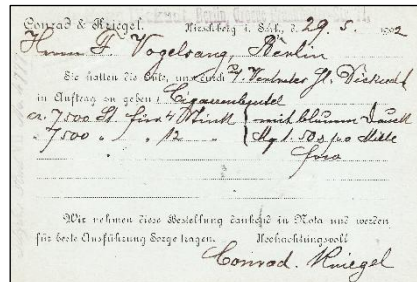 Conrad & Kriegel. Hirschberg i. Schl., den 29. 5. 1902
Herrn F. Vogelsang, Berlin
Sie hatten die Güte, uns durch Vertreter H.
in Auftrag zu geben: Cigarrenbeutel
ca. 7500 St. für 7 Stück mit blauem Druck
" 7500 " " 12 " Mg 1.50 pro Mille
Wir nehmen diese Bestellung dankend in Nota und werden
für beste Ausführung Sorge tragen. Hochachtungsvoll
Conrad. Kriegel